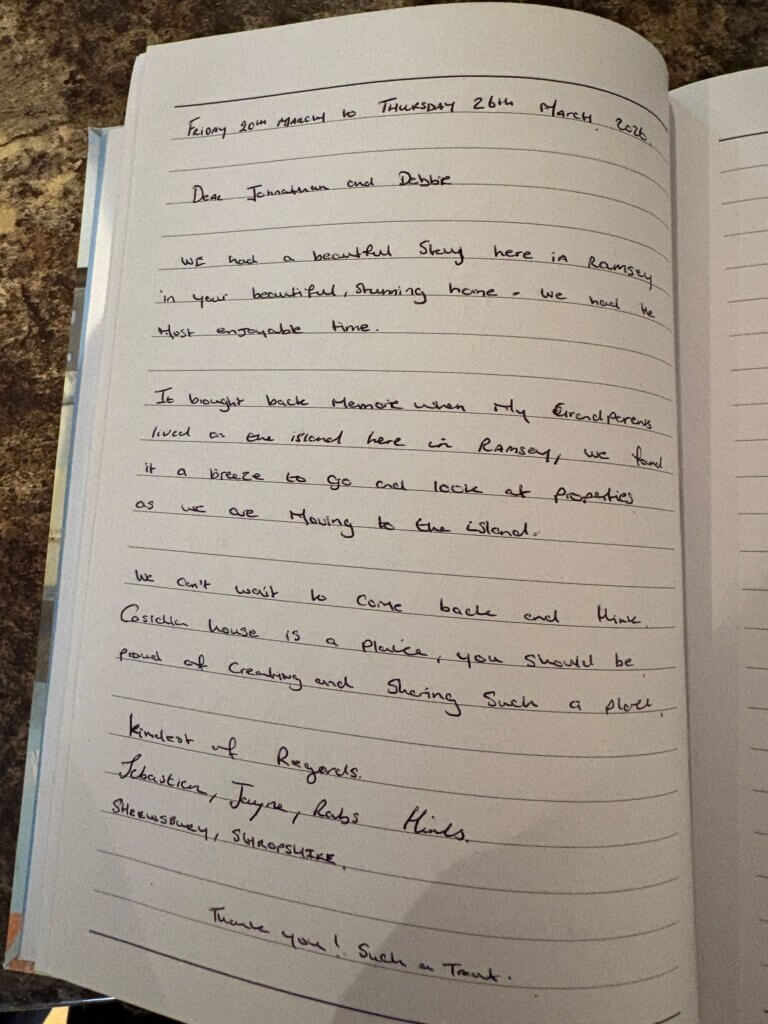 FRIDAY 20TH MARCH to THURSDAY 26TH MARCH. 2026.
DEAR Johnathan and Debbie
WE had a beautiful Stay here in RAMSEY
in your beautiful, Stunning home - we had the
Most enjoyable time.
It brought back Memorie when My Grandparents
lived on the island here in RAMSEY, we found
it a breeze to go and look at properties
as we are Moving to the island.
We can't wait to come back and think
house is a plaice, you should be
proud of Creating and Sharing Such a place.
Kindest of Regards.
Sebastien, Jayne, Rabs
SHREWSBURY, SHROPSHIRE.
Thank you! Such a Treat.